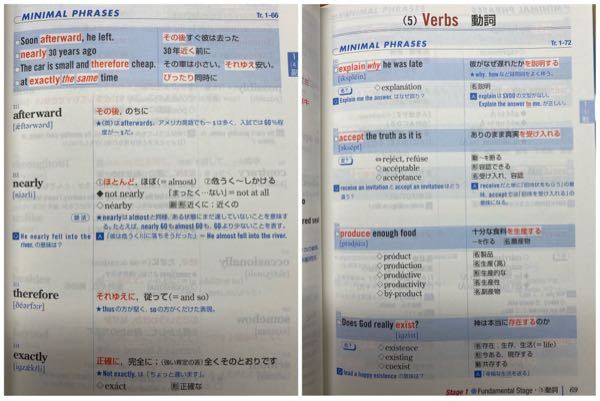 MINIMAL PHRASES
Tr. 1-66
Soon afterward, he left.
その後すぐ彼は去った
nearly 30 years ago
30年近く前に
The car is small and therefore cheap.
その車は小さい。それゆえ安い。
at exactly the same time
ぴったり同時に
afterward
その後, のちに
nearly
①ほとんど, ほぼ(=almost) ②危うく〜しかける
◆not nearly
「まったく…ない」=not at all
◇nearby
形 副 近くに; 近くの
語法
★nearlyはalmostと同様, ある状態にまだ達していないことを意味する。たとえば, nearly 60もalmost 60も, 60より少ないことを表す。
Q He nearly fell into the river. の意味は?
A 「彼は危うく川に落ちそうだった」= He almost fell into the river.
therefore
それゆえに, 従って(=and so)
★thusの方が堅く, soの方がくだけた表現。
exactly
正確に, 完全に; (強い肯定の答)全くそのとおりです
★Not exactly. は「ちょっと違います」。
◇exáct
形 正確な
(5) Verbs 動詞
MINIMAL PHRASES
Tr. 1-72
explain why he was late
彼がなぜ遅れたかを説明する
[ikspléin]
★why, howなど疑問詞をよく伴う。
◇explanátion
名 説明
Q Explain me the answer. はなぜ誤り?
A explainはSVOOの文型がない。Explain the answer to me. が正しい。
accept the truth as it is
ありのまま真実を受け入れる
⇔rejéct, refúse
動 〜を断る
◇accéptable
形 容認できる
◇accéptance
名 受け入れ, 容認
Q receive an invitationとaccept an invitationはどう違う?
produce enough food
十分な食料を生産する
〜を作る 名 農産物
◇próduct
名 製品
◇prodúction
名 生産(高)
◇prodúctive
形 生産的な
◇productívity
名 生産性
◇by-product
名 副産物
Does God really exist?
神は本当に存在するのか
[igzíst]
◇exístence
名 存在; 生存, 生活(=life)
◇exísting
形 今ある, 現存する
◇coexíst
動 共存する
Q lead a happy existenceの意味は?
A 「幸福な生活を送る」
Stage 1 ●Fundamental Stage・(5)動詞 69